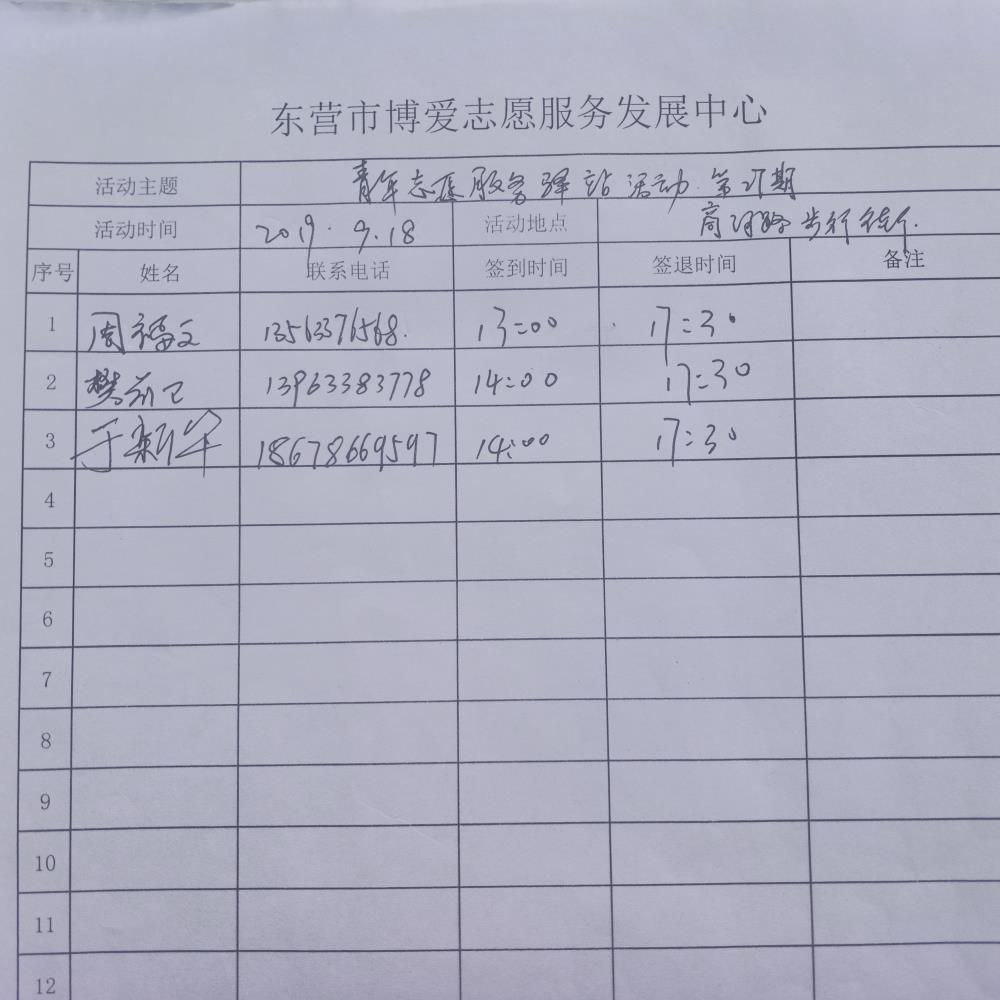 东营市博爱志愿服务发展中心
活动主题 青年志愿服务驿站活动 第21期
活动时间 2019.9.18 活动地点 商河路步行街
序号 姓名 联系电话 签到时间 签退时间 备注
1 周福文 13563376568. 13:00 17:30
2 樊前卫 13963383778 14:00 17:30
3 于新华 18678669597 14:00 17:30
4
5
6
7
8
9
10
11
12